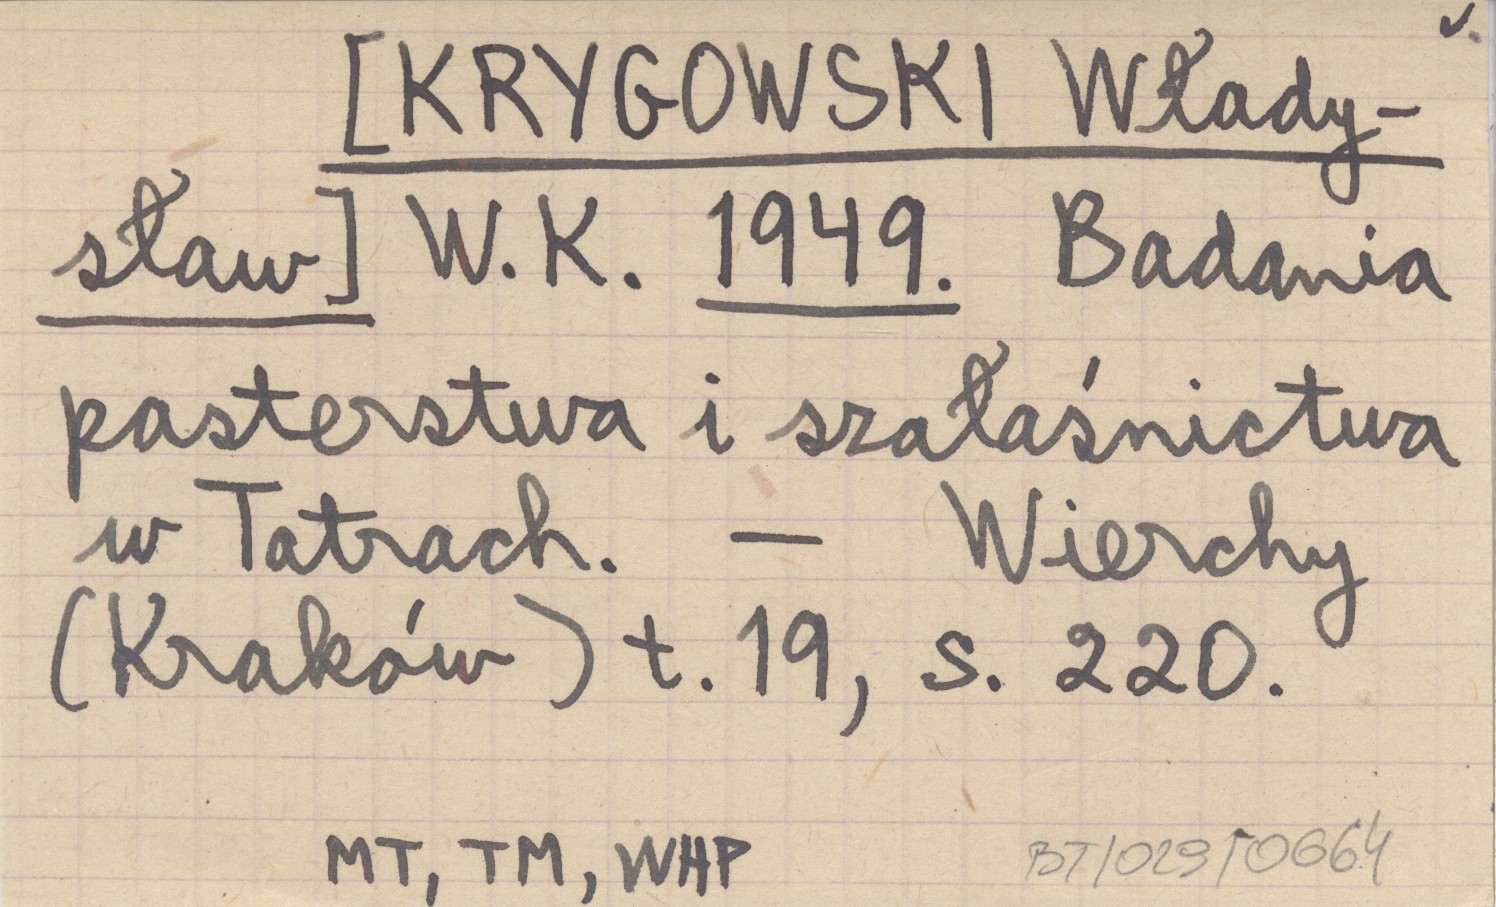 [KRYGOWSKI Włady-
sław] W.K. 1949. Badania
pasterstwa i szałaśnictwa
w Tatrach. — Wierchy
(Kraków) t. 19, s. 220.
MT, TM, WHP
BT/029/0664